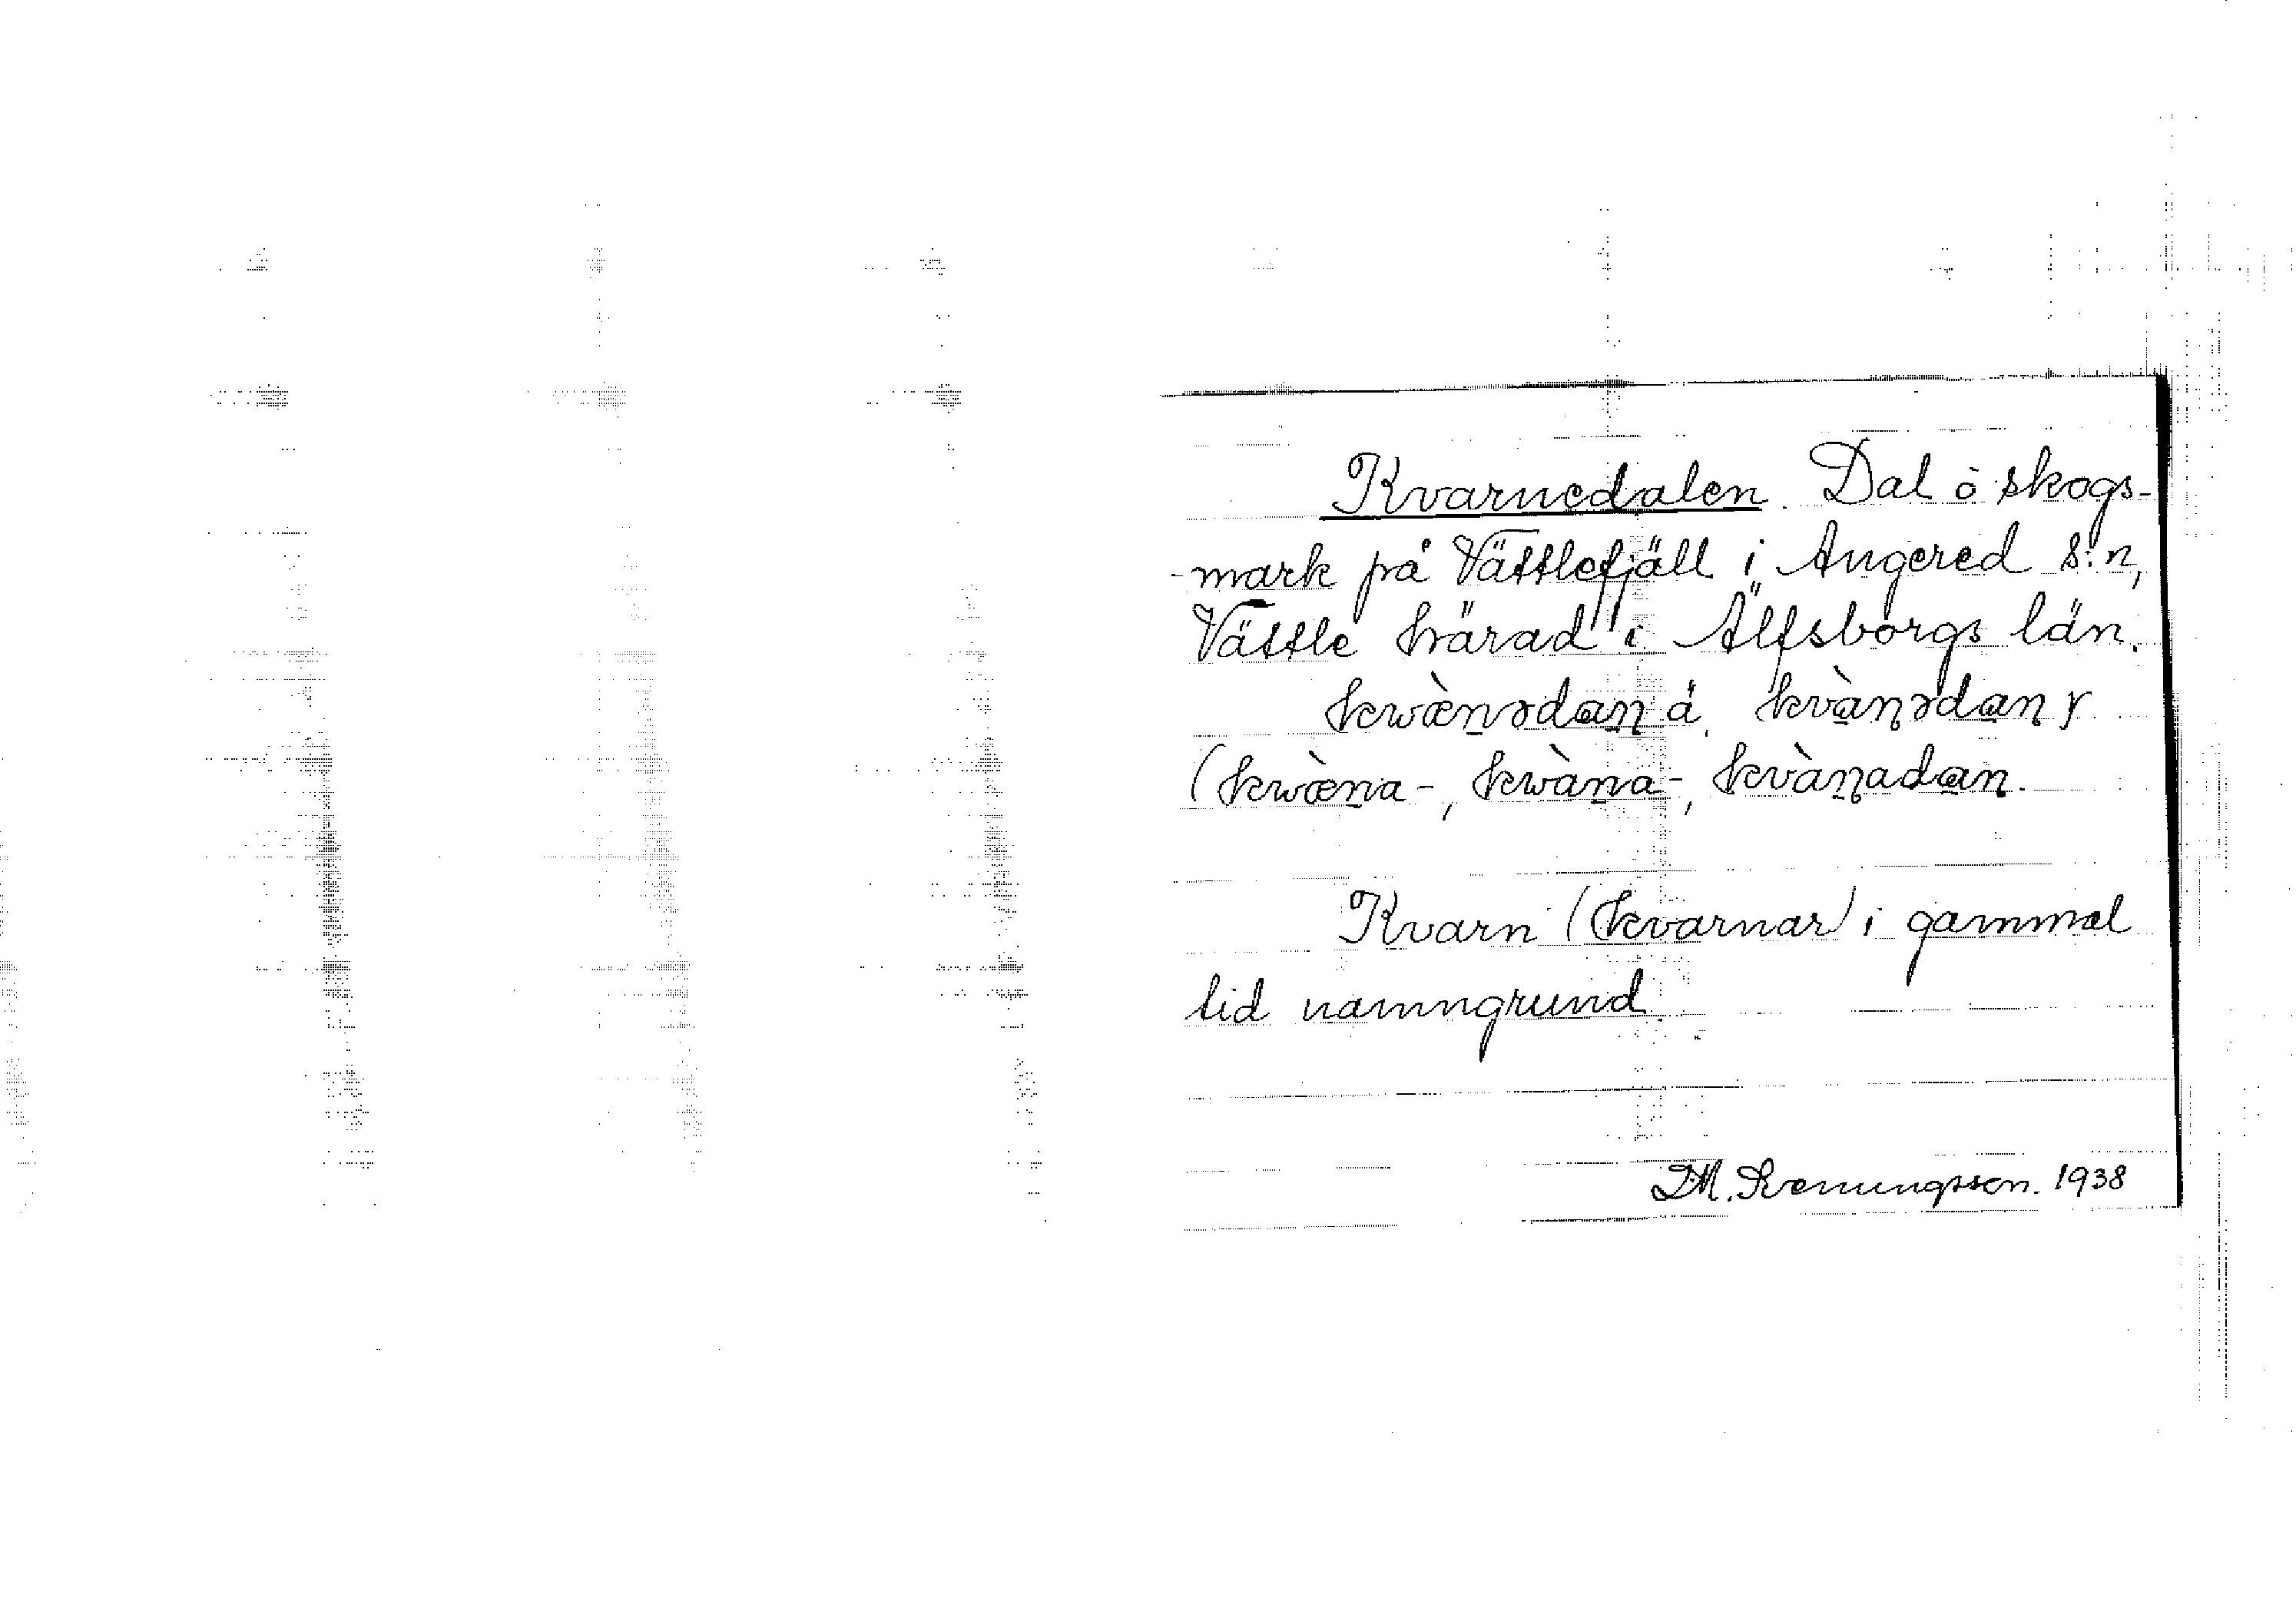 Kvarnedalen. Dal o skogs-
-mark på Vättlefjäll i Angered s:n,
Vättle härad i Älfsborgs län.
kwæ̀nədan å, kvànədan y
(kwæ̀na-, kwàna-, kvànadan.
Kvarn (kvarnar) i gammal
tid namngrund.
D.M. Svenungsson. 1938